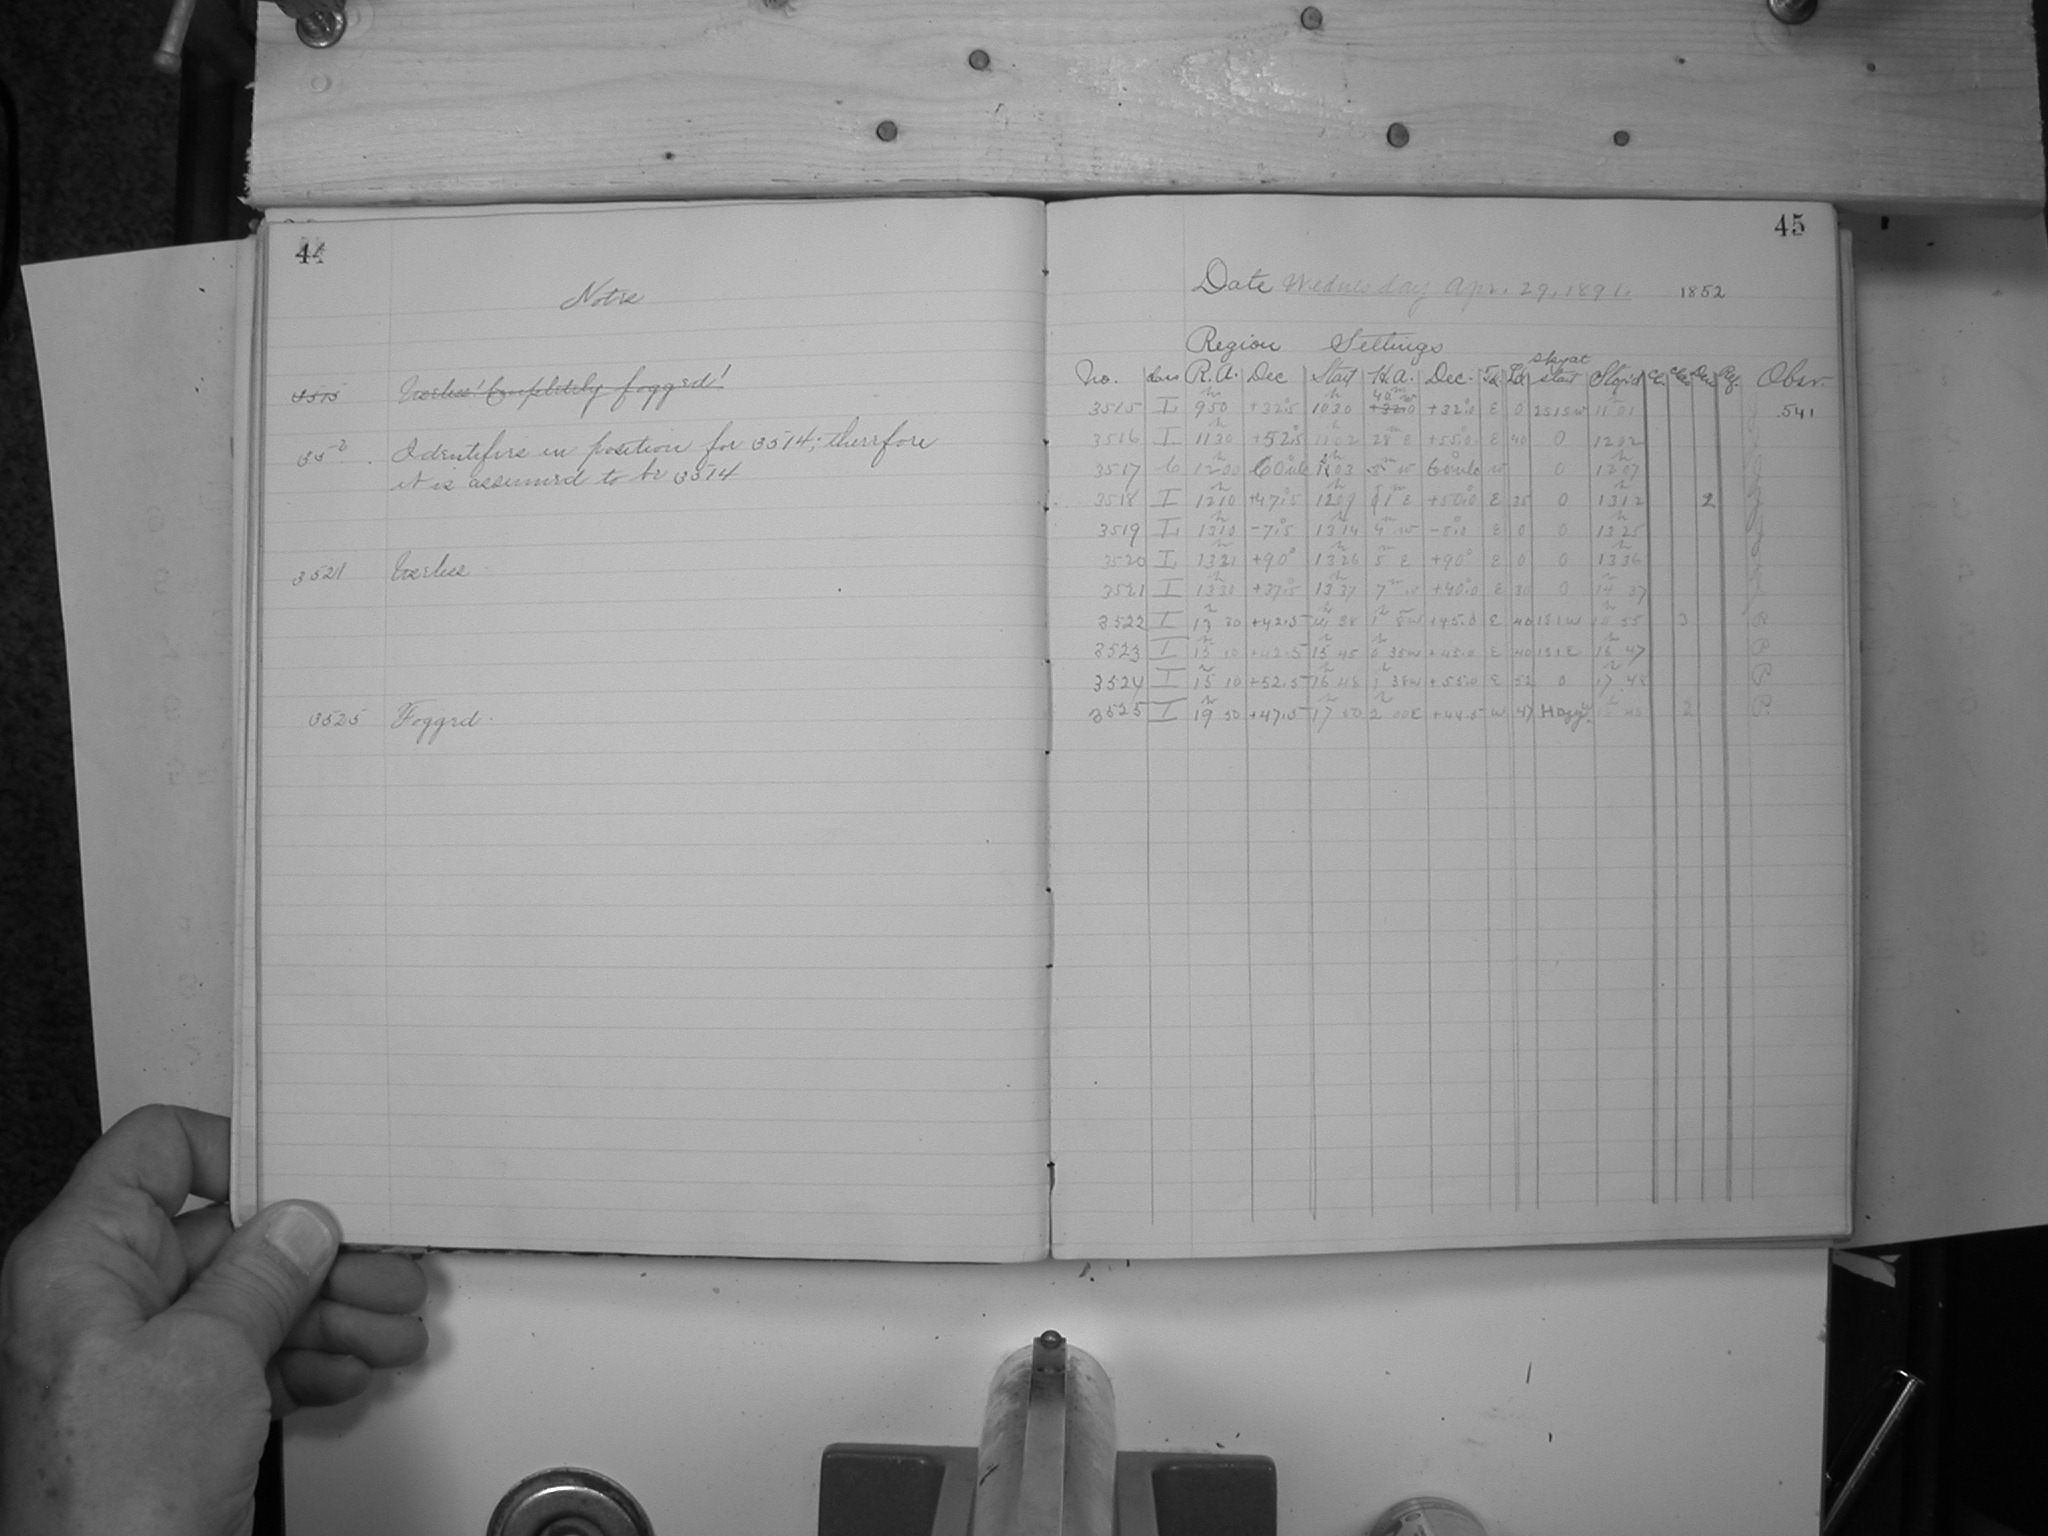 44
Notes
3515 Useless! Completely fogged!
Identifies in position for 3514; therefore
it is assumed to be 3514
3521 Useless
3525 Fogged.
45
Date Wednesday Apr. 29, 1891. 1852
Region Settings
No. Class R.A. Dec Start H.A. Dec. Sky at start Stop'd Obsr.
3515 I 9 50 +32.5 10 30 40m W +32.0 E 0 2S1SW 11 01 541
3516 I 11 30 +52.5 11 02 28m E +55.0 E 40 0 12 02
3517 12 00 12 03 W 0 12 07
3518 I 12 10 +47.5 12 09 E +50.0 E 35 0 13 12 2
3519 I 13 10 -7.5 13 14 4m W -8.0 E 0 0 13 25
3520 I 13 21 +90° 13 26 5m E +90° E 0 0 13 36
3521 I 13 30 +37.5 13 37 7m W +40.0 E 30 0 14 37
3522 I 13 30 +42.5 14 38 1 8W +45.0 E 40 1S1W 55 3
3523 I 15 10 +42.5 15 45 0 35W +45.0 E 40 1S1E 16 47
3524 I 15 10 +52.5 16 48 1 38W +55.0 E 52 0 17 48
3525 I 19 50 +47.5 17 50 2 00E +44.5 W 47 Hazy